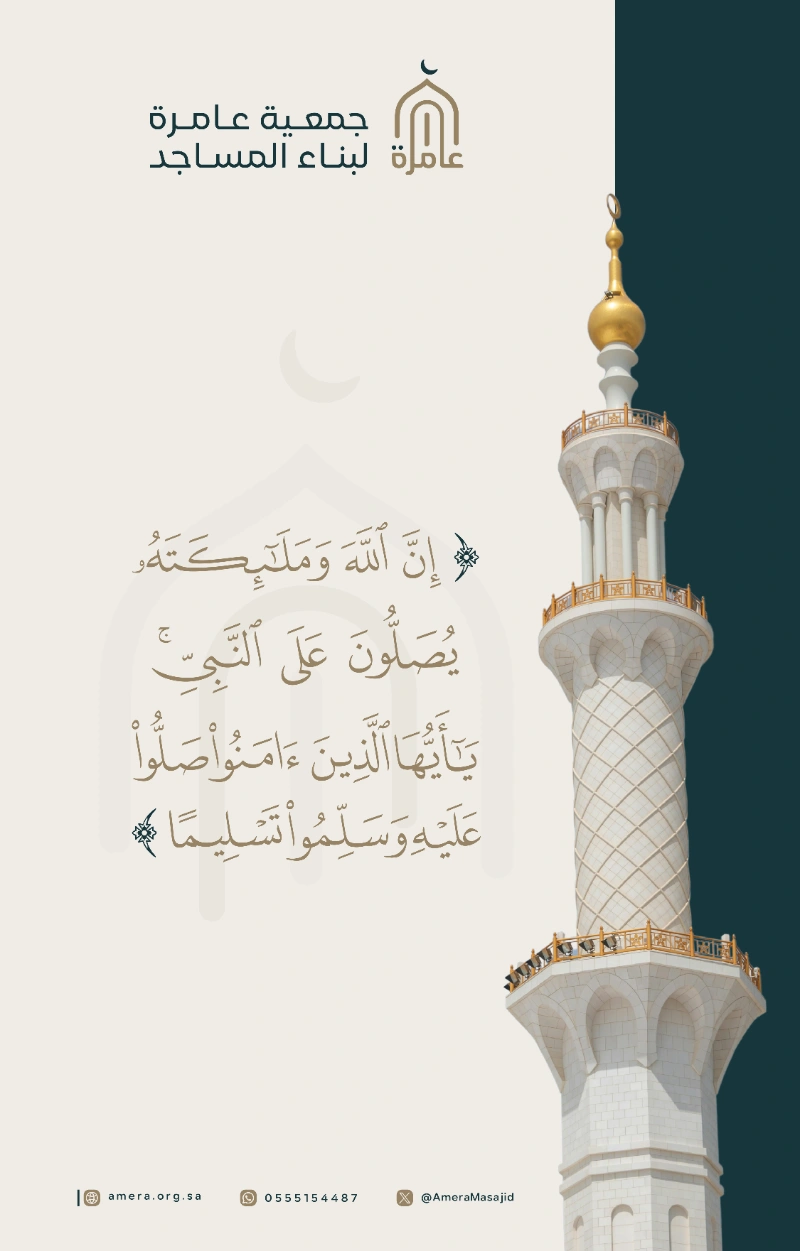 جمعية عامرة
لبناء المساجد
عامرة
﴿ إِنَّ ٱللَّهَ وَمَلَـٰٓئِكَتَهُۥ
يُصَلُّونَ عَلَى ٱلنَّبِىِّ ۚ
يَـٰٓأَيُّهَا ٱلَّذِينَ ءَامَنُوا۟ صَلُّوا۟
عَلَيْهِ وَسَلِّمُوا۟ تَسْلِيمًا ﴾
amera.org.sa
0555154487
@AmeraMasajid